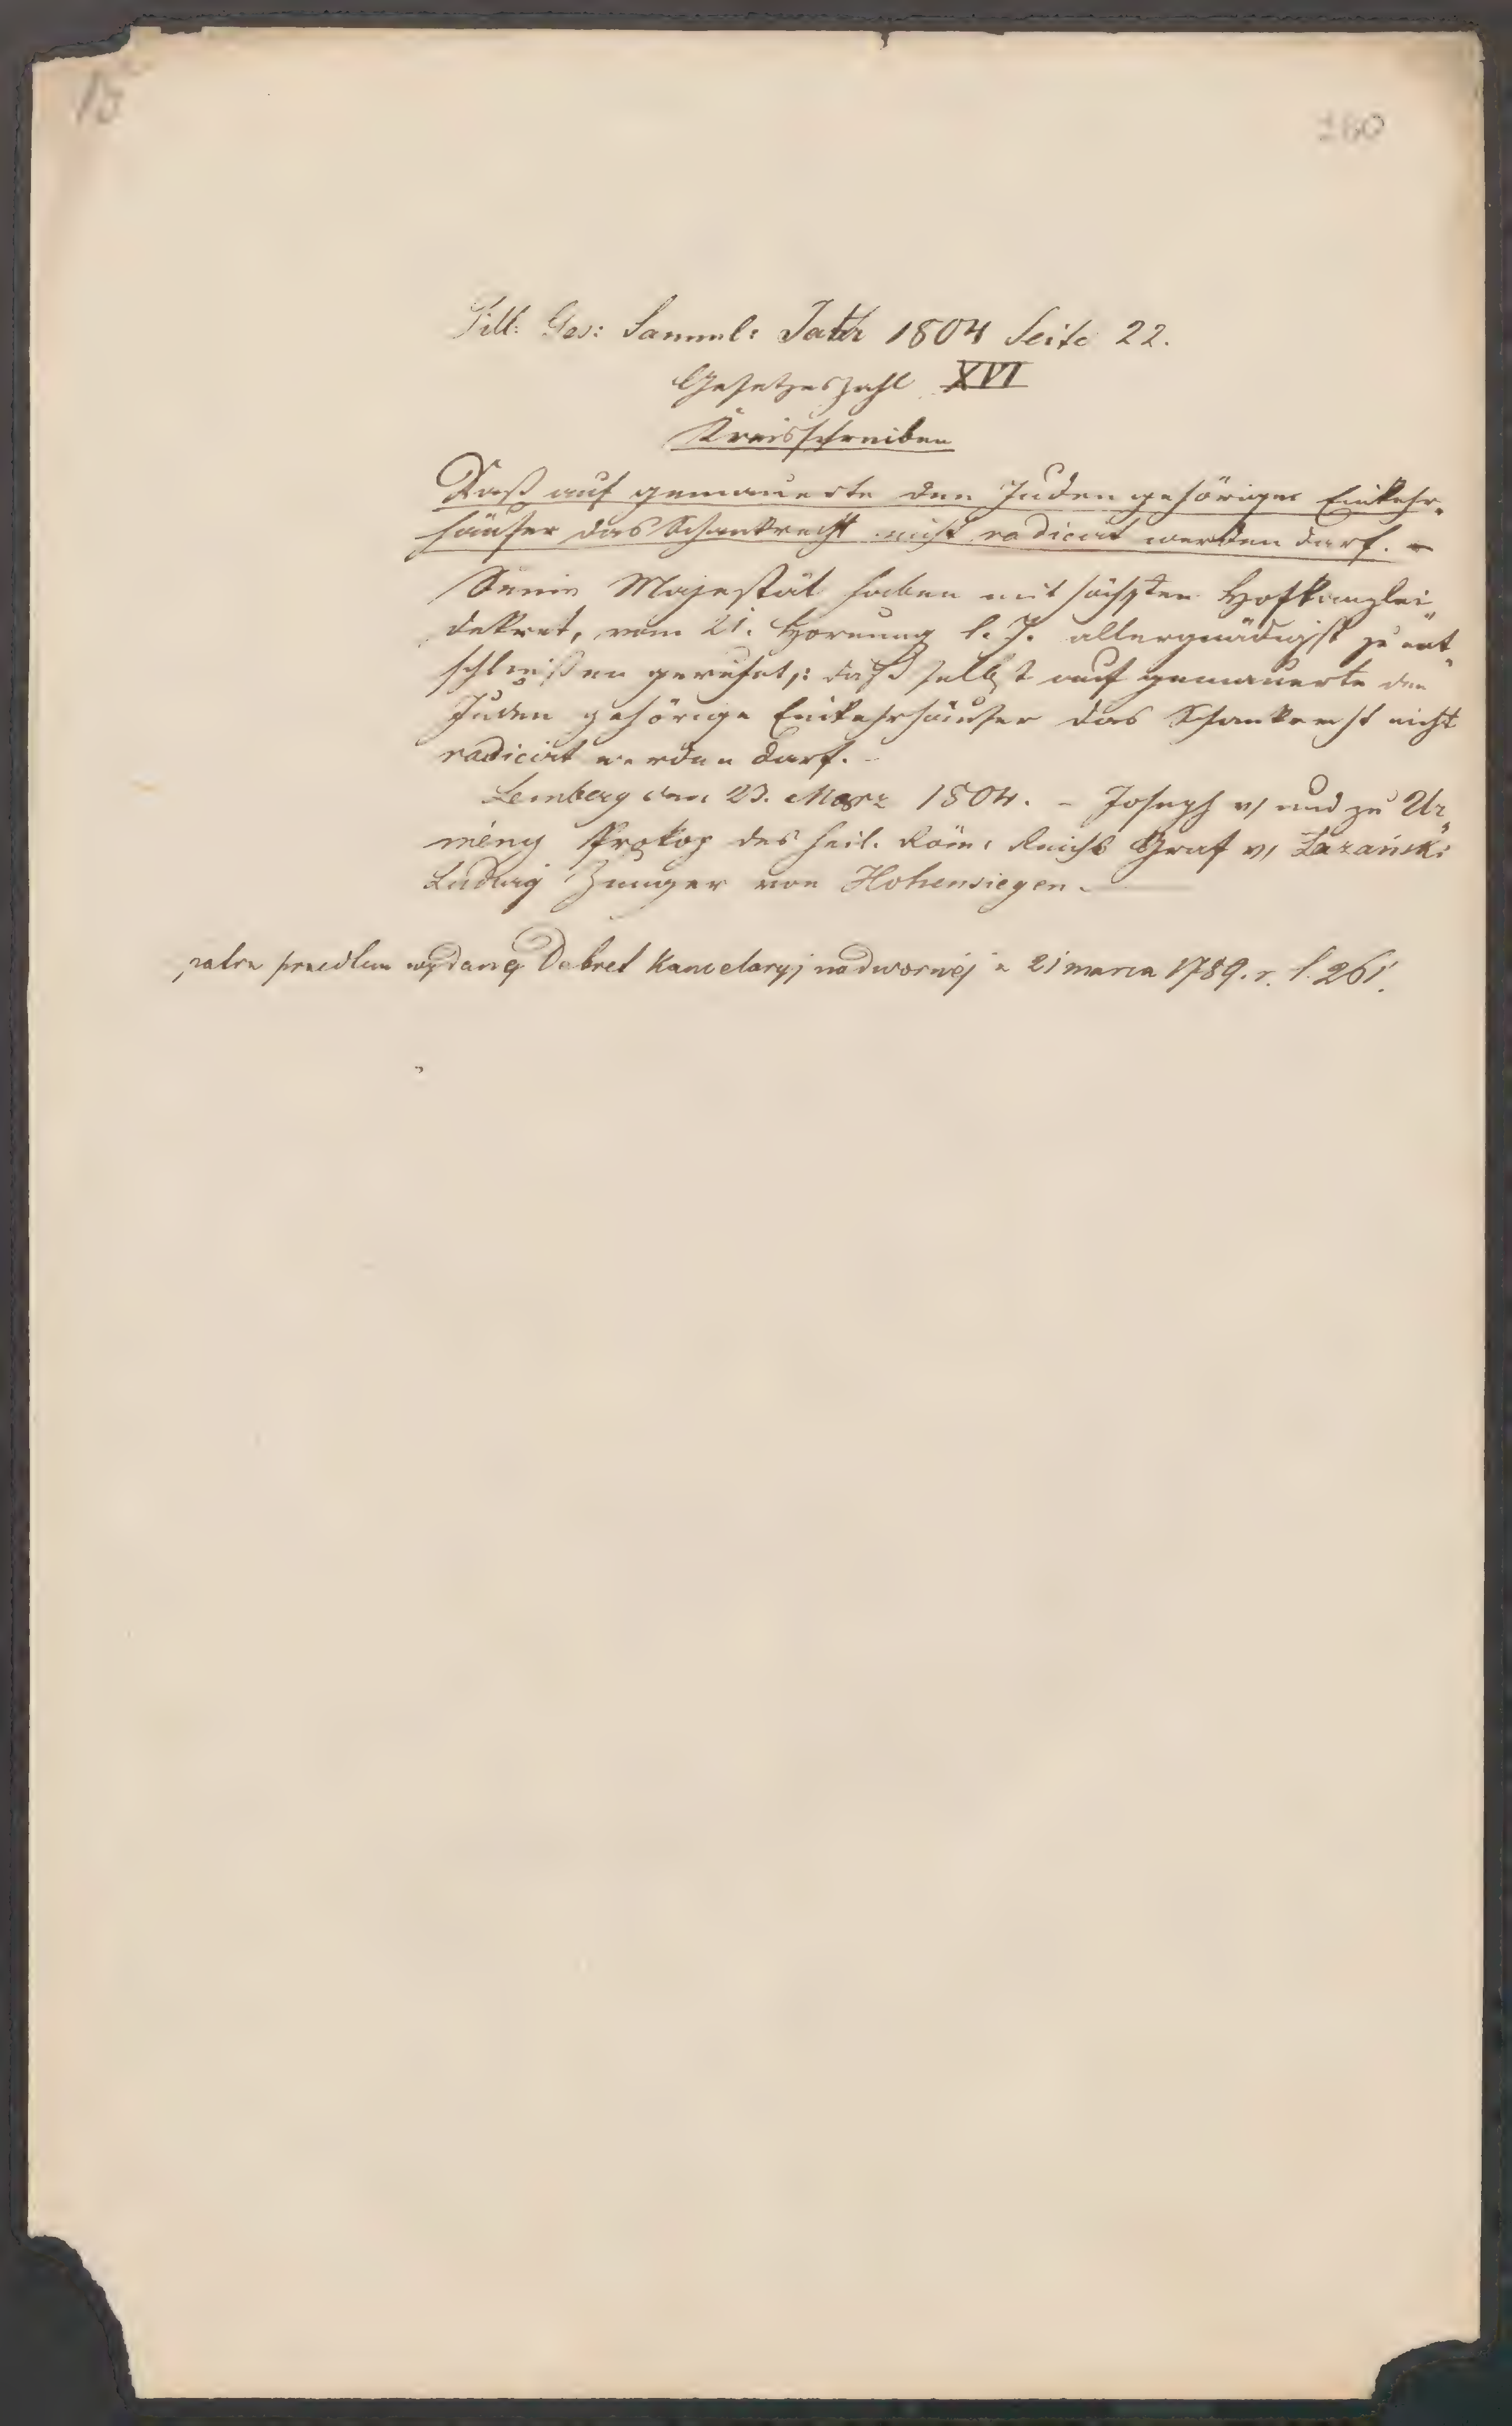 15
180
Pill: Ges: Samml: Jahr 1804 Seite 22.
Gesetzeszahl XVI
Kreisschreiben
Daß auf gemauerte den Juden gehörige Einkehr-
häuser das Schankrecht nicht radicirt werden darf. -
Seine Majestät haben mit höchsten Hofkanzlei
dekret, vom 21. Hornung l. J. allergnädigst zu ent-
schließen geruhet,: daß selbst auf gemauerte den
Juden gehörige Einkehrhäuser das Schankrecht nicht
radicirt werden darf. -
Lemberg den 23. März 1804. - Joseph v/ und zu Ür-
mény Prokop des heil. Röm: Reichs Graf v/ Lazański
Ludwig Zunger von Hohensiegen.
patrz wydany Dekret Kancelaryj nadwornéj z 21 marca 1789. r. l. 261.